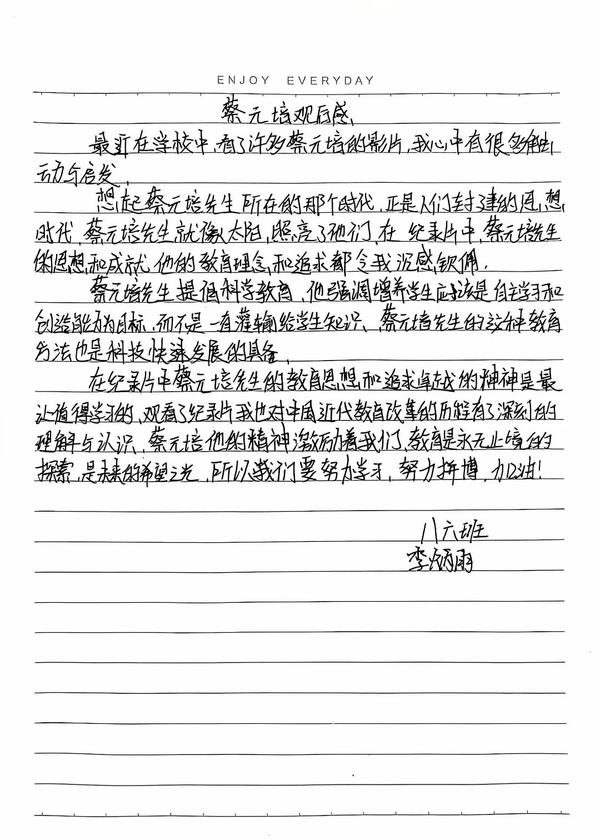 ENJOY EVERYDAY
蔡元培观后感
最近在学校中,看了许多蔡元培的影片,我心中有很多触
动与启发,
想起蔡元培先生所在的那个时代,正是人们封建的思想
时代,蔡元培先生就像太阳,照亮了他们,在纪录片中,蔡元培先生
的思想和成就,他的教育理念和追求都令我深感钦佩.
蔡元培先生提倡科学教育,他强调增养学生应该是自主学习和
创造能力为目标,而不是一直灌输给学生知识、蔡元培先生的这种教育
方法也是科技快速发展的具备,
在纪录片中蔡元培先生的教育思想和追求卓越的精神是最
让值得学习的,观看了纪录片我也对中国近代教育改革的历程有了深刻的
理解与认识,蔡元培他的精神激励着我们,教育是永无止境的
探索,是未来的希望之光,所以我们要努力学习,努力拼博,加油!
八六班
李炳雨